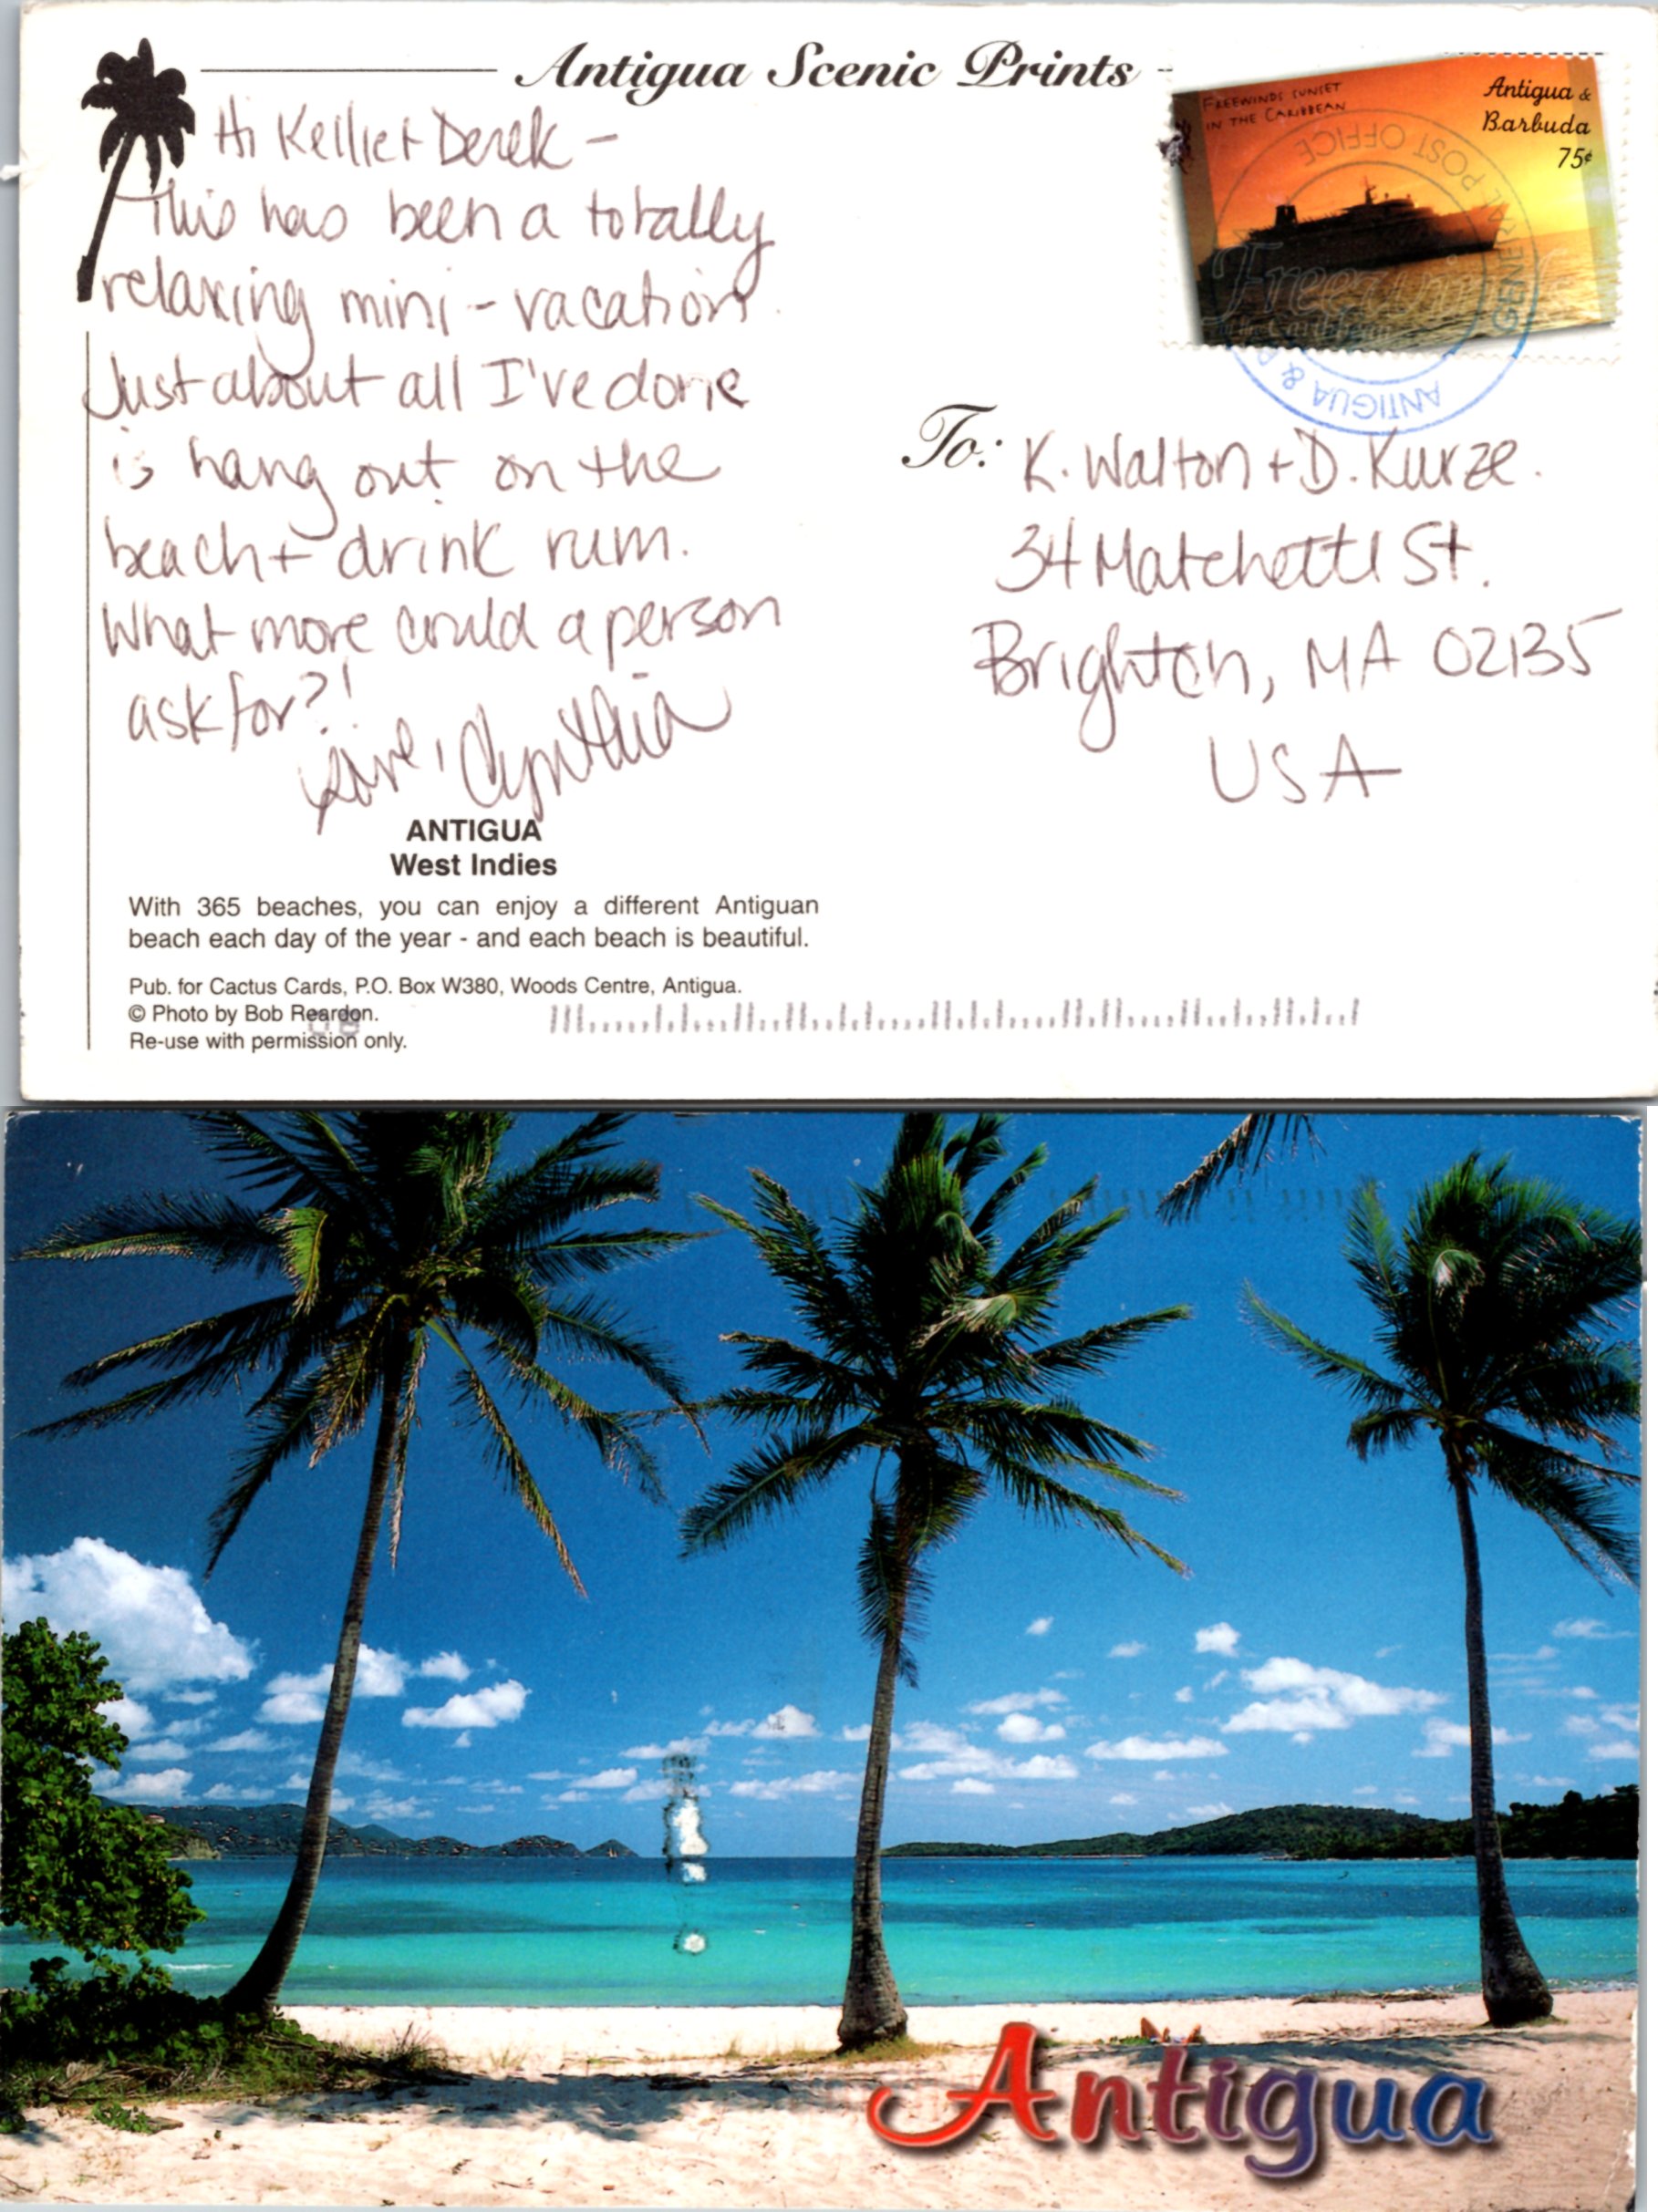 Antigua Scenic Prints
Hi Kellie + Derek -
This has been a totally
relaxing mini - vacation.
Just about all I've done
is hang out on the
beach + drink rum.
What more could a person
ask for?!
Love, Cynthia
ANTIGUA
West Indies
With 365 beaches, you can enjoy a different Antiguan
beach each day of the year - and each beach is beautiful.
Pub. for Cactus Cards, P.O. Box W380, Woods Centre, Antigua.
© Photo by Bob Reardon.
Re-use with permission only.
FREEWINDS SUNSET
IN THE CARIBBEAN
Antigua &
Barbuda
75¢
Freewinds
in the Caribbean
GENERAL POST OFFICE
ANTIGUA & B
To: K. Walton + D. Kurze.
34 Matchett St.
Brighton, MA 02135
USA
Antigua